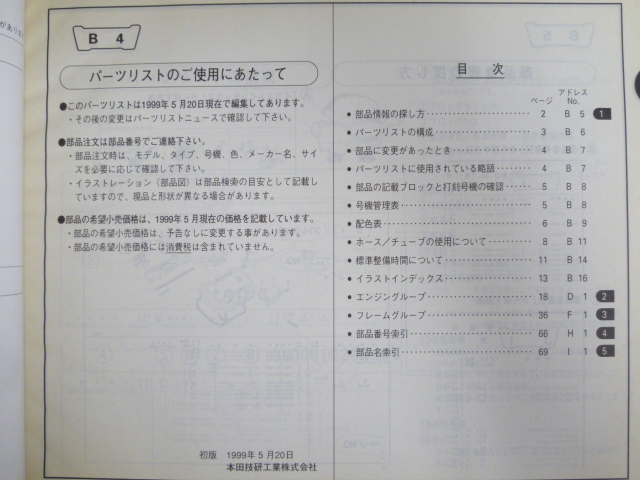 B 4
パーツリストのご使用にあたって
●このパーツリストは1999年5月20日現在で編集してあります。
・その後の変更はパーツリストニュースで確認して下さい。
●部品注文は部品番号でご連絡下さい。
・部品注文時は、モデル、タイプ、号機、色、メーカー名、サイ
ズを必要に応じて確認して下さい。
・イラストレーション（部品図）は部品検索の目安として記載し
ていますので、現品と形状が異なる場合があります。
●部品の希望小売価格は、1999年5月現在の価格を記載しています。
・部品の希望小売価格は、予告なしに変更する事があります。
・部品の希望小売価格には消費税は含まれていません。
初版 1999年5月20日
本田技研工業株式会社
目 次
ページ アドレス No.
● 部品情報の探し方 2 B 5 1
● パーツリストの構成 3 B 6
● 部品に変更があったとき 4 B 7
● パーツリストに使用されている略語 4 B 7
● 部品の記載ブロックと打刻号機の確認 5 B 8
● 号機管理表 5 B 8
● 配色表 6 B 9
● ホース／チューブの使用について 8 B 11
● 標準整備時間について 11 B 14
● イラストインデックス 13 B 16
● エンジングループ 18 D 1 2
● フレームグループ 36 F 1 3
● 部品番号索引 66 H 1 4
● 部品名索引 69 I 1 5